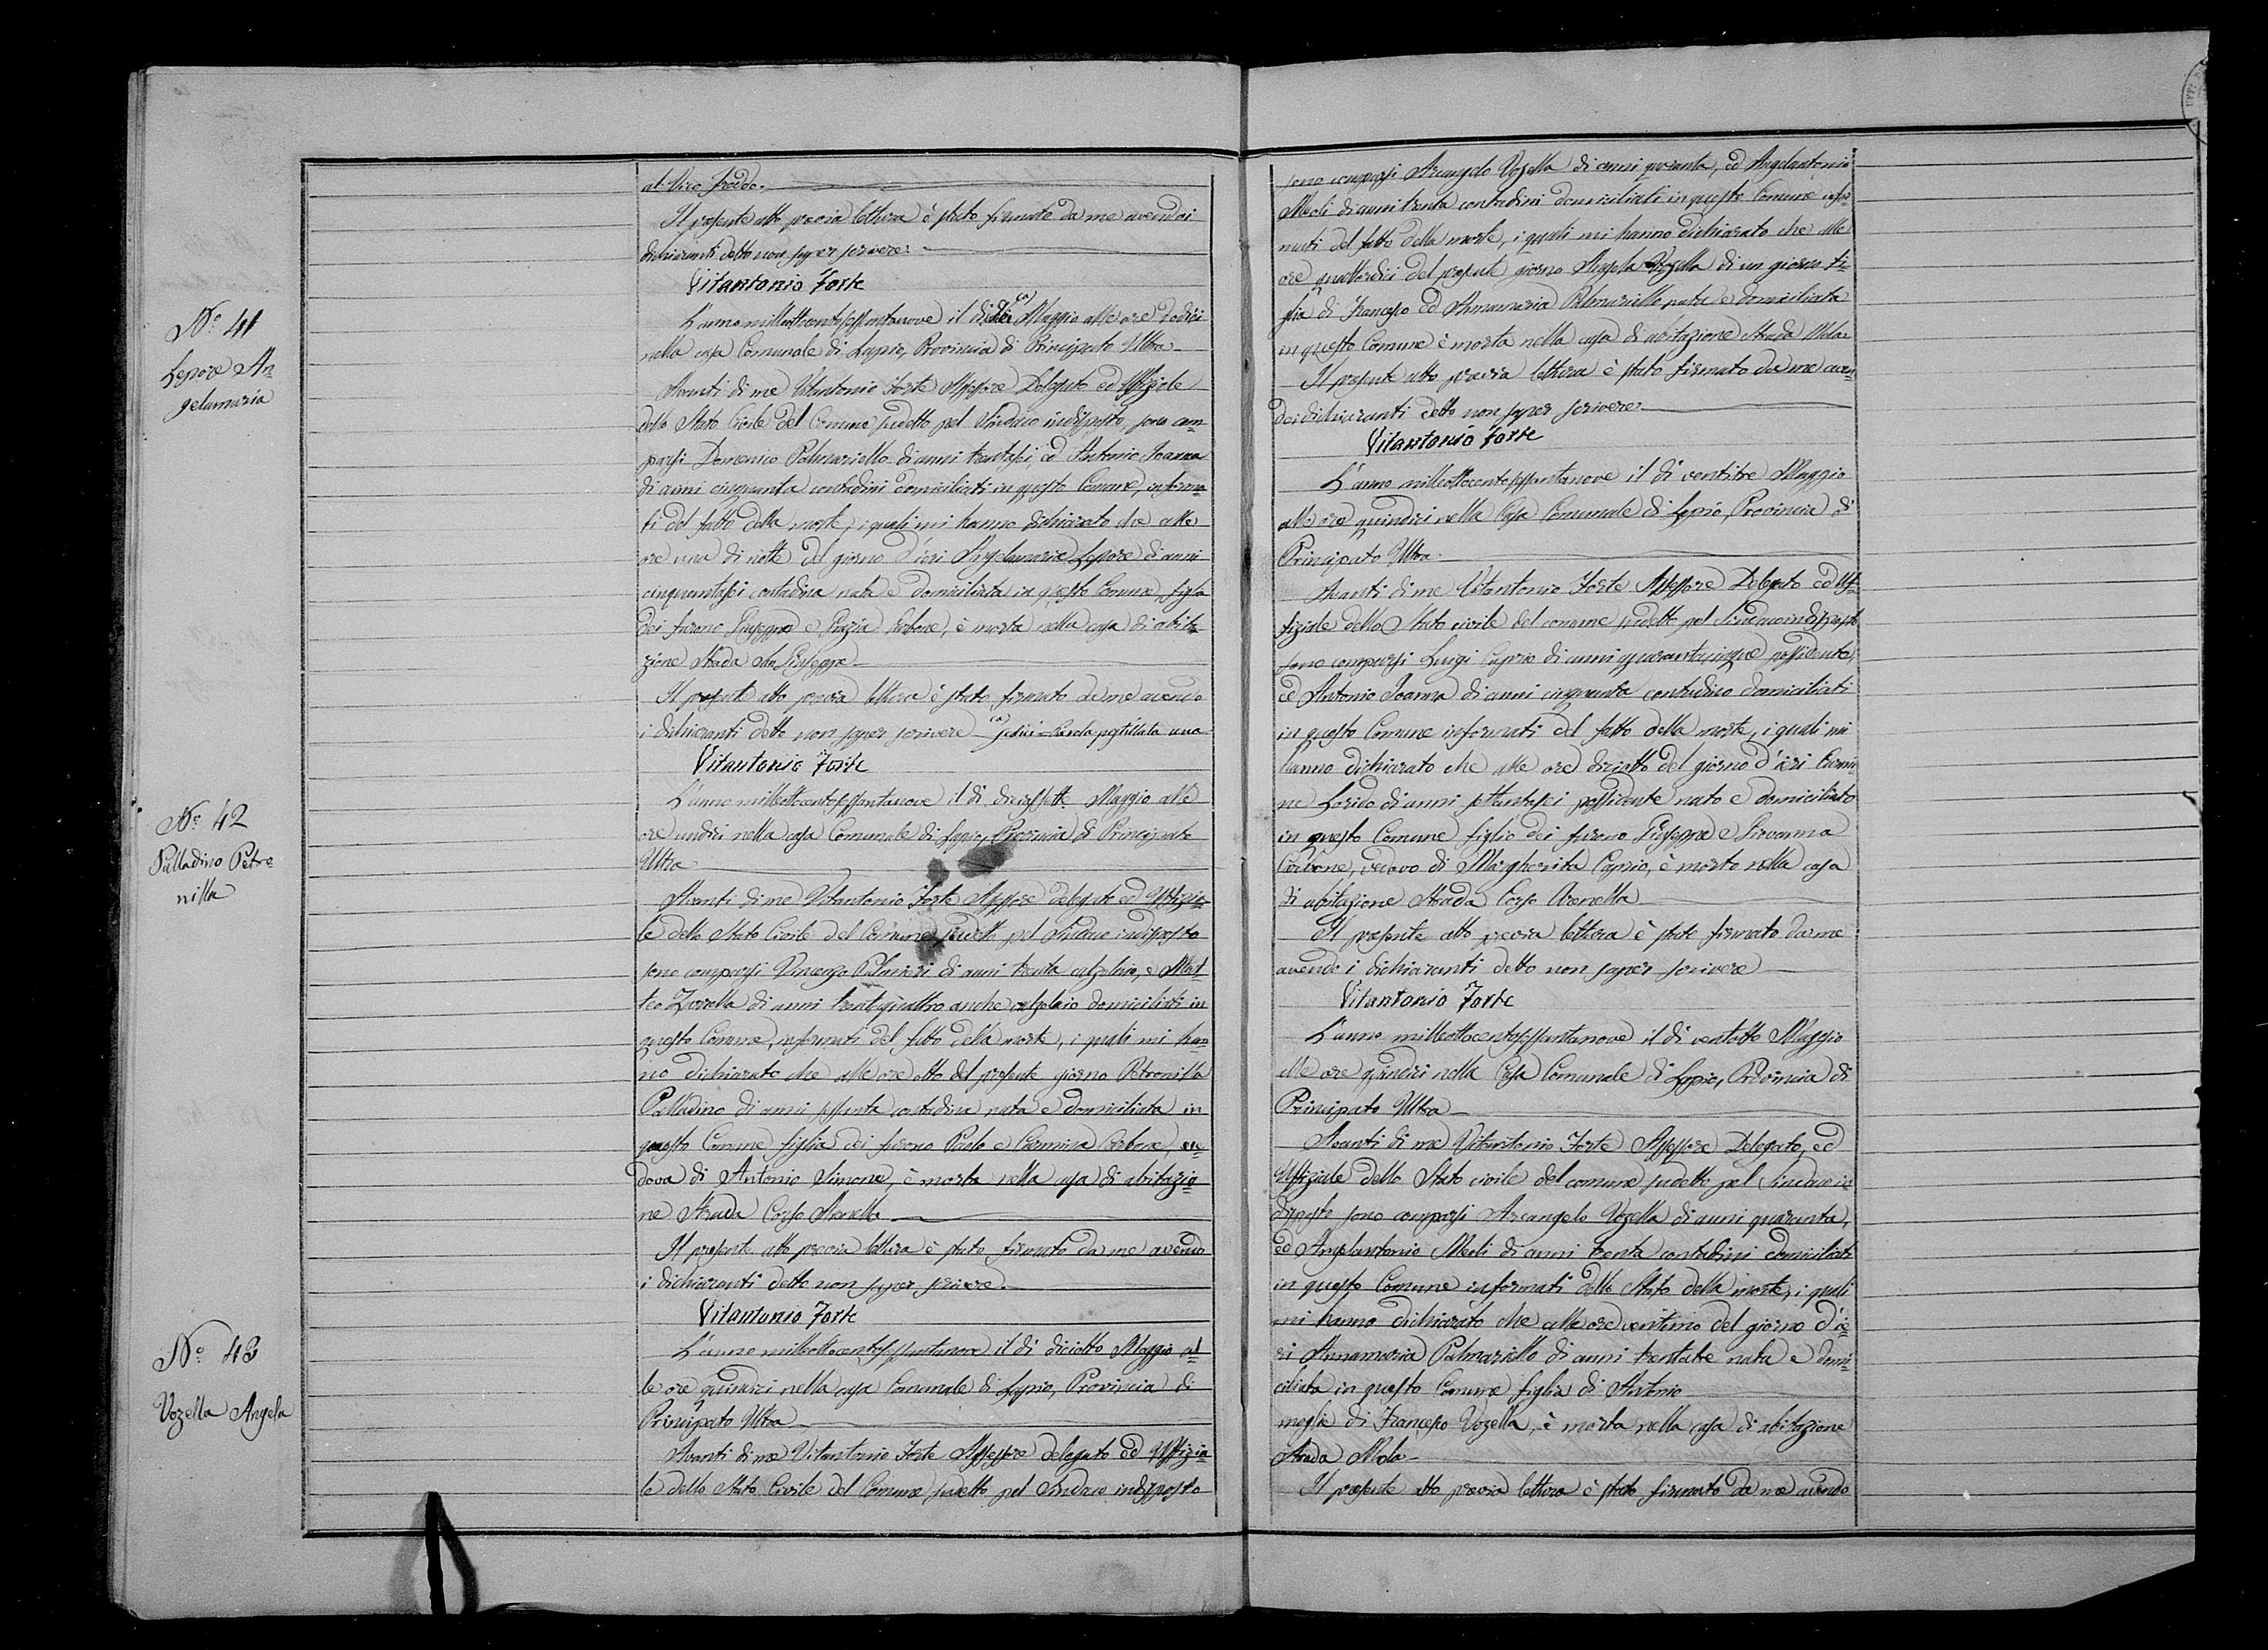 al Vico freddo.
Il presente atto previa lettura è stato firmato da me avendo i
dichiaranti detto non saper scrivere.
Vitantonio Forte
Nº 41
Lepore An-
gelamaria
L'anno milleottocentosessantanove il dì (a) Maggio alle ore dodici
nella casa Comunale di Lapio, Provincia di Principato Ultra
Avanti di me Vitantonio Forte Assessore Delegato ed Uffiziale
dello Stato Civile del Comune sudetto pel Sindaco indisposto, sono com-
parsi Domenico Palmariello di anni trentasei, ed Antonio Ioanna
di anni cinquanta contadini domiciliati in questo Comune, informa-
ti del fatto della morte, i quali mi hanno dichiarato che alle
ore una di notte del giorno d'ieri Angelamaria Lepore di anni
cinquantasei contadina nata e domiciliata in questo Comune, figlia
dei furono Giuseppe e Grazia Carbone, è morta nella casa di abita-
zione Strada San Giuseppe
Il presente atto previa lettura è stato firmato da me avendo
i dichiaranti detto non saper scrivere (a) sedici = Parola postillata una
Vitantonio Forte
Nº 42
Palladino Petro
nilla
L'anno milleottocentosessantanove il dì diciassette Maggio alle
ore undici nella casa Comunale di Lapio, Provincia di Principato
Ultra
Avanti di me Vitantonio Forte Assessore delegato ed Uffizia-
le dello Stato Civile del Comune sudetto pel Sindaco indisposto
sono comparsi Vincenzo Palmieri di anni trenta calzolaio, e Mat-
teo Zarrella di anni trentaquattro anche calzolaio domiciliati in
questo Comune, informati del fatto della morte, i quali mi han-
no dichiarato che alle ore otto del presente giorno Petronilla
Palladino di anni sessanta contadina nata e domiciliata in
questo Comune figlia dei furono Paolo e Carmina Carbone, ve-
dova di Antonio Simone, è morta nella casa di abitazio-
ne Strada Corso Arenella
Il presente atto previa lettura è stato firmato da me avendo
i dichiaranti detto non saper scrivere.
Vitantonio Forte
Nº 43
Vozella Angela
L'anno milleottocentosessantanove il dì diciotto Maggio al-
le ore quindici nella casa Comunale di Lapio, Provincia di
Principato Ultra
Avanti di me Vitantonio Forte Assessore delegato ed Uffizia-
le dello Stato Civile del Comune sudetto pel Sindaco indisposto
sono comparsi Arcangelo Vozella di anni quaranta, ed Angelantonio
Meoli di anni trenta contadini domiciliati in questo Comune infor-
mati del fatto della morte, i quali mi hanno dichiarato che alle
ore quattordici del presente giorno Angela Vozella di un giorno fi-
glia di Francesco ed Annamaria Palmariello nata e domiciliata
in questo Comune è morta nella casa di abitazione Strada Mola
Il presente atto previa lettura è stato firmato da me aven-
do i dichiaranti detto non saper scrivere
Vitantonio Forte
L'anno milleottocentosessantanove il dì ventitre Maggio
alle ore quindici nella Casa Comunale di Lapio, Provincia di
Principato Ultra
Avanti di me Vitantonio Forte Assessore Delegato ed Uf-
fiziale dello Stato civile del comune sudetto pel Sindaco indisposto
sono comparsi Luigi Caprio di anni quarantacinque possidente,
ed Antonio Ioanna di anni cinquanta contadino domiciliati
in questo Comune informati del fatto della morte, i quali mi
hanno dichiarato che alle ore diciotto del giorno d'ieri Carmi-
ne Lorido di anni settantasei possidente nato e domiciliato
in questo Comune figlio dei furono Giuseppe e Giovanna
Carbone, vedovo di Margherita Caprio, è morto nella casa
di abitazione Strada Corso Arenella
Il presente atto previa lettura è stato firmato da me
avendo i dichiaranti detto non saper scrivere
Vitantonio Forte
L'anno milleottocentosessantanove il dì ventotto Maggio
alle ore quindici nella Casa Comunale di Lapio, Provincia di
Principato Ultra
Avanti di me Vitantonio Forte Assessore Delegato, ed
Uffiziale dello Stato civile del comune sudetto pel Sindaco in
disposto sono comparsi Arcangelo Vozella di anni quaranta,
ed Angelantonio Meoli di anni trenta contadini domiciliati
in questo Comune informati dello Stato della morte, i quali
mi hanno dichiarato che alle ore ventuno del giorno d'ie-
ri Annamaria Palmariello di anni trentatre nata e domi-
ciliata in questo Comune figlia di Antonio
moglie di Francesco Vozella, è morta nella casa di abitazione
Strada Mola
Il presente atto previa lettura è stato firmato da me avendo